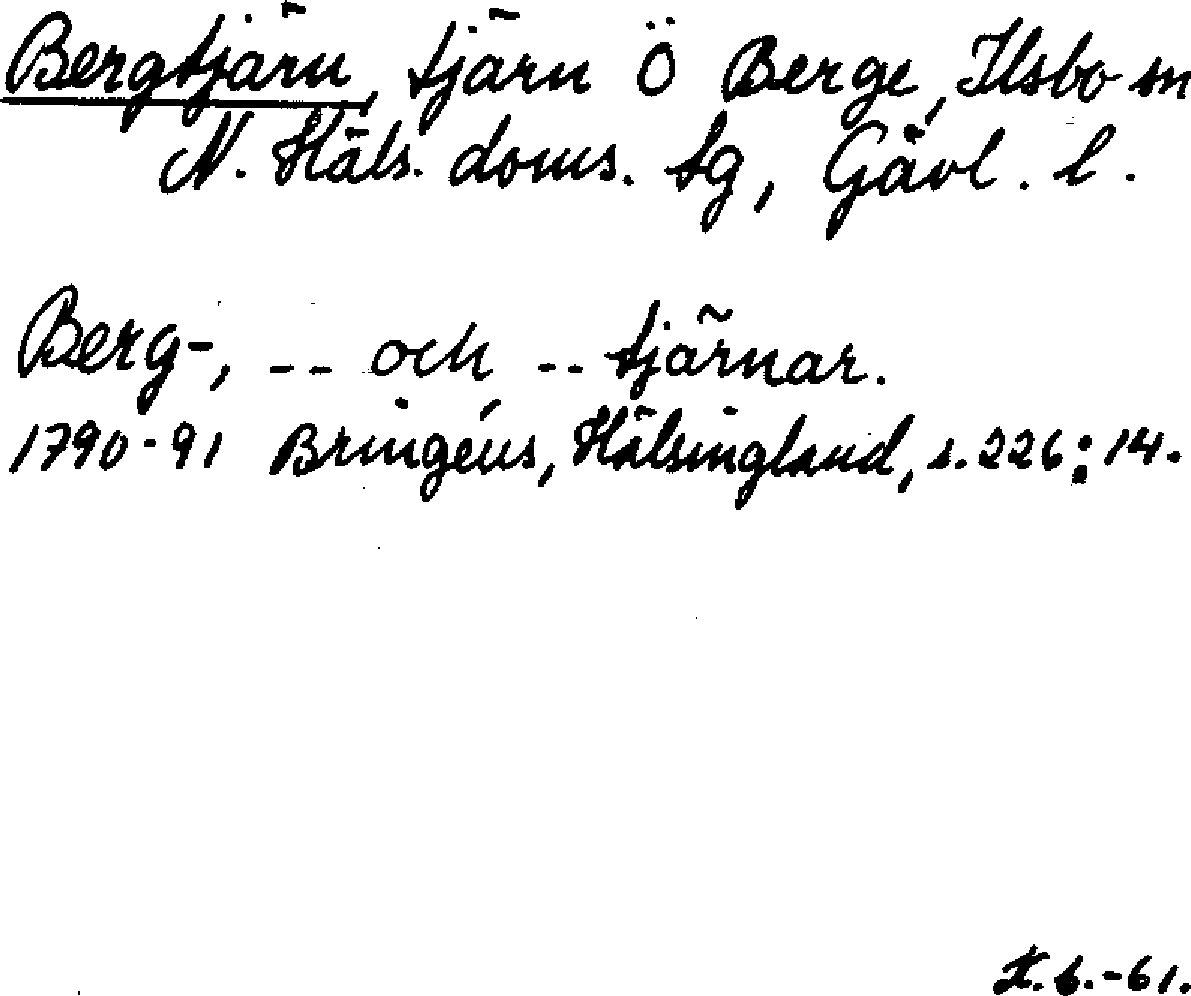 Bergtjärn, tjärn Ö Berge, Ilsbo sn
N. Häls. doms. tg, Gävl. l.
Berg-, -- och -- tjärnar.
1790-91 Bringéus, Hälsingland, s. 226:14.
-61.